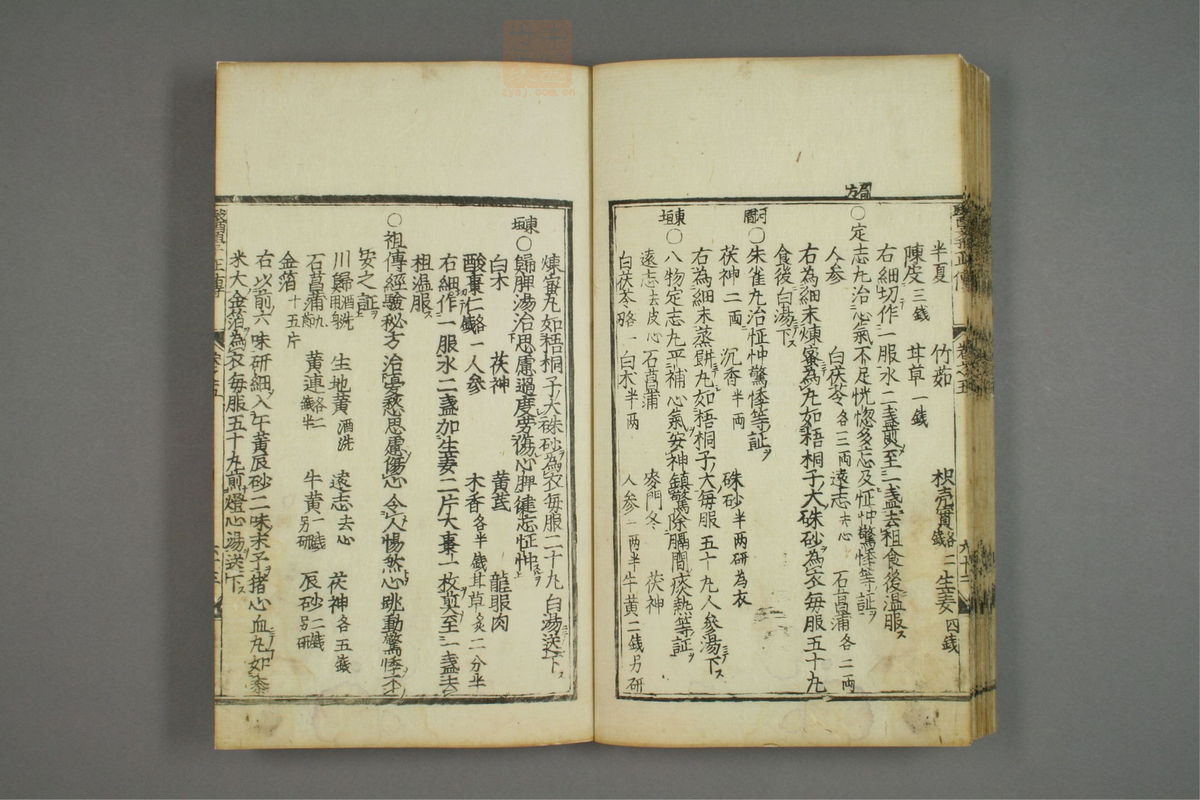 半夏　竹茹　枳壳實各二錢　生姜四錢
陳皮三錢　甘草一錢
右細切作一服水二盞煎至一盞去柤食後溫服ス
局方
○定志丸治心氣不足恍惚多忘及怔忡驚悸等証ヲ
人參　白茯苓各三兩　遠志去心　石菖蒲各二兩
右為細末煉蜜為丸如梧桐子大硃砂為衣每服五十丸
食後白湯下ス
河間
○朱雀丸治怔忡驚悸等証ヲ
茯神二両　沉香半両　硃砂半两研為衣
右為細末蒸餅丸如梧桐子大每服五十丸人參湯下ス
東垣
○八物定志丸平補心氣安神鎮驚除膈間痰熱等証ヲ
遠志去皮心　石菖蒲　麥門冬　茯神
白茯苓各一　白朮半两　人參一两半　牛黄二錢另研
煉蜜丸如梧桐子大硃砂為衣每服三十丸白湯送下ス
東垣
○歸脾湯治思慮過度勞傷心脾健忘怔忡ヲ
白朮　茯神　黄芪　龍眼肉
酸棗仁各一錢　人參　木香各半錢　甘草炙二分半
右細作一服水二盞加生姜三片大棗一枚煎至一盞去
柤温服ス
○祖傳經驗秘方　治憂愁思慮傷心令人惕然心跳動驚悸不
安之証ヲ
川歸酒洗　生地黄酒洗　遠志去心　茯神各五錢
石菖蒲九　黄連各二錢半　牛黄一錢另研　辰砂二錢另研
金箔十五片
右以前六味研細入牛黄辰砂二味末子猪心血丸如黍
米大金箔為衣每服五十丸煎燈心湯送下ス